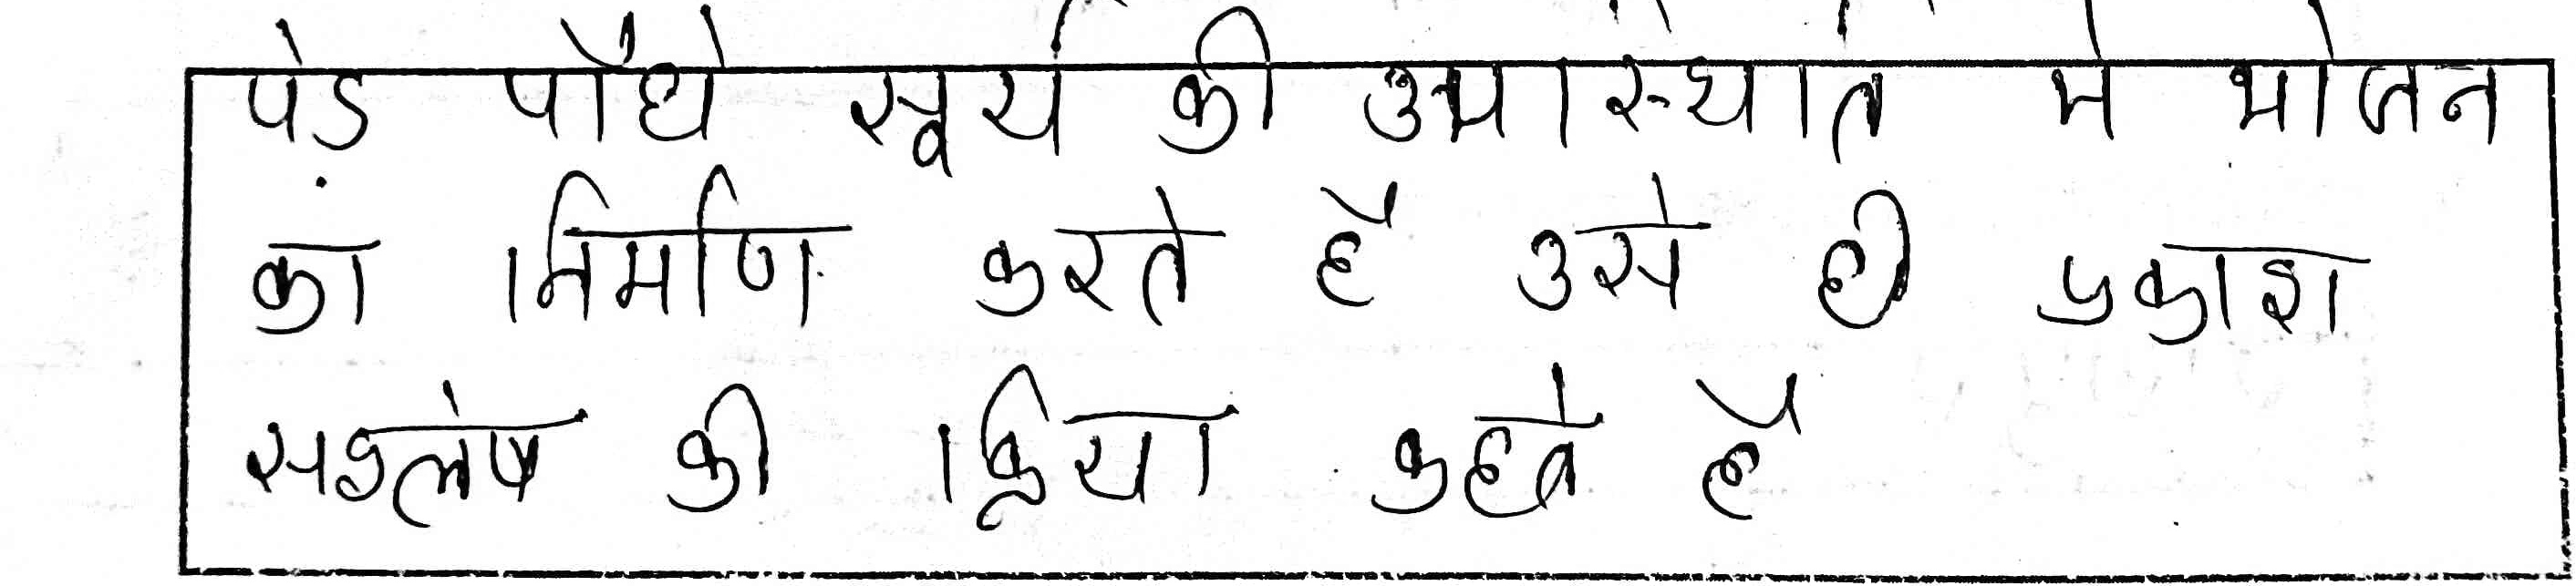 पेड पौधे सूर्य की उपास्थति मे भोजन
का निर्माण करते है उसे ही प्रकाश
सश्लेष की क्रिया कहते है